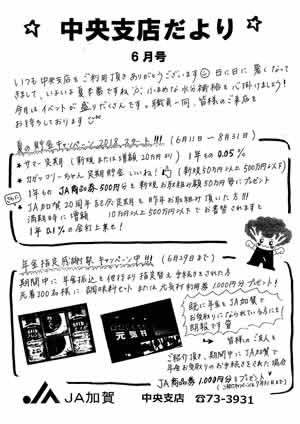 中央支店だより
6月号
いつも中央支店をご利用頂きありがとうございます 日に日に暑くなって
きまして、いよいよ夏本番ですね こまめな水分補給を心掛けましょう!
今月はイベントが盛りだくさんです。職員一同、皆様のご来店を
お待ちしております
夏の貯金キャンペーン2018スタート!!! (6月11日〜8月31日)
サマー定期 (新規または増額20万円〜) 1年もの 0.05%
カガッコリーちゃん定期貯金 いいね! (新規50万円以上500万円以下)
1年もの JA商品券500円分を新規お取組み額50万円毎にプレゼント
JA加賀20周年記念定期を昨年お取組み頂いた方!!!
満期時に増額 10万円以上500万円以下でお書替されますと
1年 0.1%の金利上乗せ!
年金指定感謝祭キャンペーン中!!! (6月29日まで)
期間中に年金振込を
先着200名様に調味料セットまたは元気村利用券1,000円分プレゼント!
既に年金をJA加賀で
お受取りになられている方にも
朗報です
皆様のご友人を
ご紹介頂き、期間中にJA加賀で
年金お受取りのお手続きをされた場合
JA商品券1,000円分をプレゼント
元気村
JA加賀 中央支店 ☎73-3931